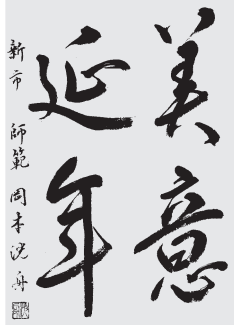 美意
延年
新市 師範 岡本洸舟